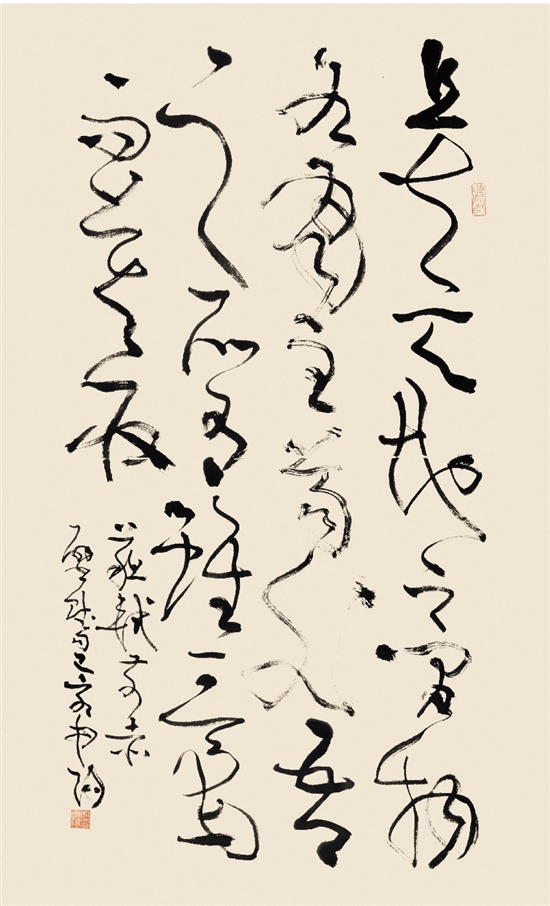 且夫天地之間物
各有主苟非吾
之所有雖一毫
而莫取
蘇軾前赤
壁賦句己亥